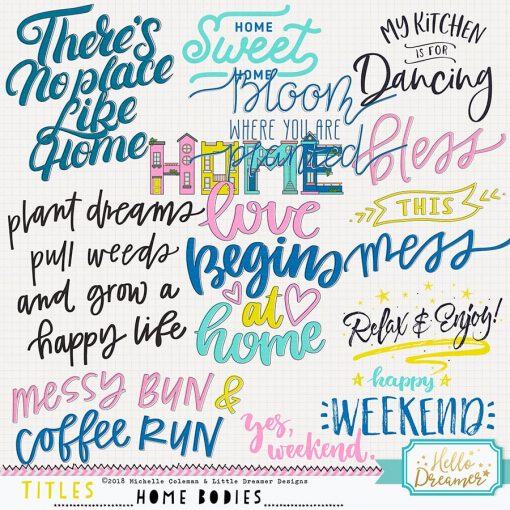 There's
No place
Like
Home
HOME
Sweet
HOME
MY KITCHEN
IS FOR
Dancing
Bloom
WHERE YOU ARE
planted
HOME
bless
THIS
mess
plant dreams
pull weeds
and grow a
happy life
love
Begins
at
home
Relax & Enjoy!
happy
WEEKEND
messy BUN &
coffee RUN
yes,
weekend.
Hello
Dreamer
©2018 Michelle Coleman & Little Dreamer Designs
TITLES
HOME BODIES